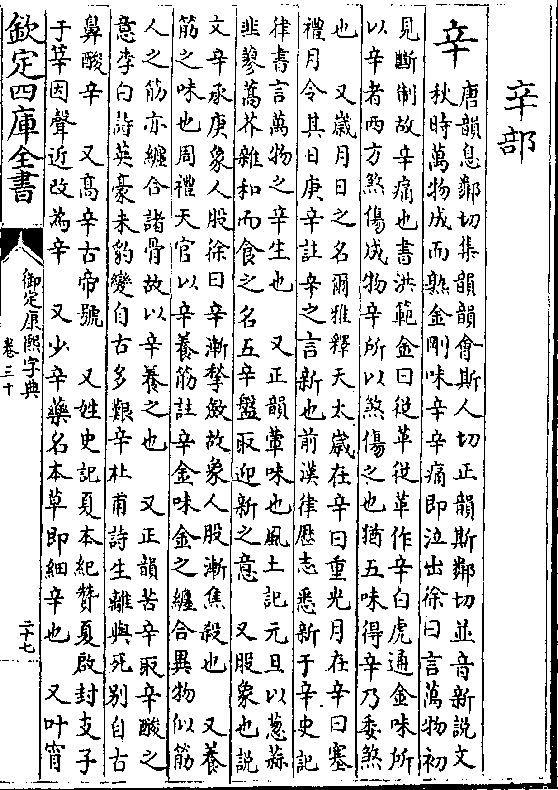 辛部
辛 唐韻息鄰切集韻韻會斯人切正韻斯鄰切並音新說文
秋時萬物成而熟金剛味辛辛痛即泣出徐曰言萬物初
見斷制故辛痛也書洪範金曰從革從革作辛白虎通金味所
以辛者西方煞傷成物辛所以煞傷之也猶五味得辛乃委煞
也 又歲月日之名爾雅釋天太歲在辛曰重光月在辛曰塞
禮月令其日庚辛註辛之言新也前漢律歷志悉新于辛史記
律書言萬物之辛生也 又正韻葷味也風土記元旦以葱蒜
韭蓼蒿芥雜和而食之名五辛盤取迎新之意 又股象也說
文辛承庚象人股徐曰辛漸揫斂故象人股漸焦殺也 又養
筋之味也周禮天官以辛養筋註辛金味金之纏合異物似筋
人之筋亦纏合諸骨故以辛養之也 又正韻苦辛取辛酸之
意李白詩英豪未豹變自古多艱辛杜甫詩生離與死別自古
鼻酸辛 又高辛古帝號 又姓史記夏本紀贊夏啟封支子
于莘因聲近改為辛 又少辛藥名本草即細辛也 又叶宵
欽定四庫全書
御定康熙字典
卷三十
二十七